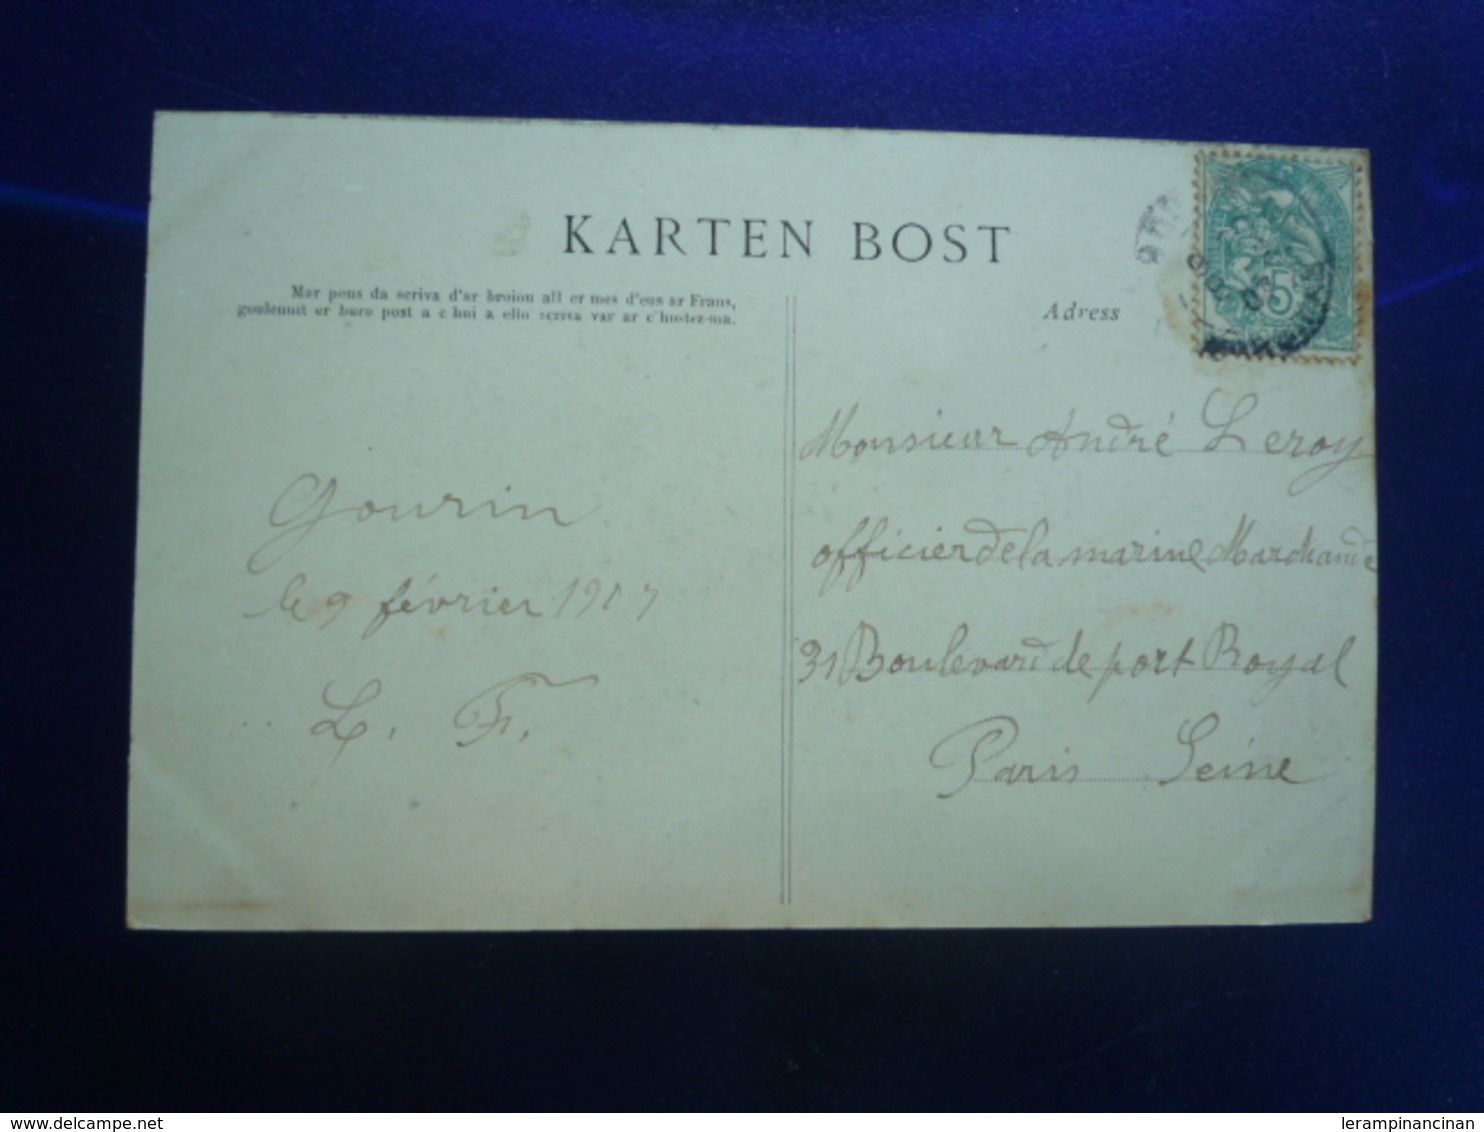 KARTEN BOST
Mar pens da scriva d'ar broiou all er mes d'eus ar Frans,
goulennit er buro post a c'hui a ello scriva var ar c'hostez-ma.
Adress
5
07
Monsieur André Leroy
officier de la marine Marchande
31 Boulevard de port Royal
Paris Seine
Gourin
le 9 février 1907
L. F.
www.delcampe.net
lerampinancinan